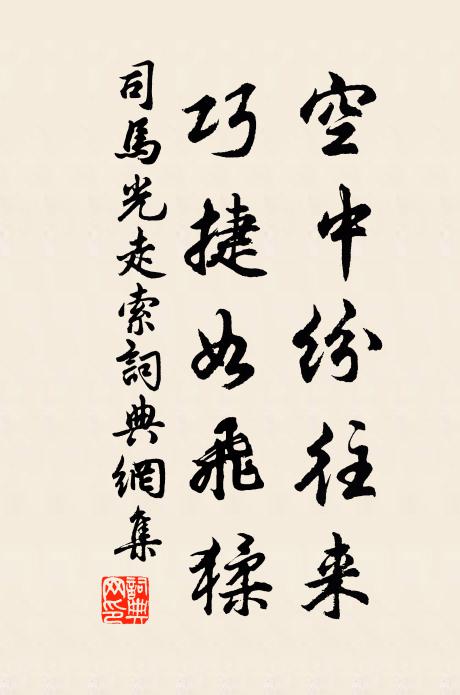 空中纷往来
巧捷如飛猱
司馬光走索詞典網集
詞典网印